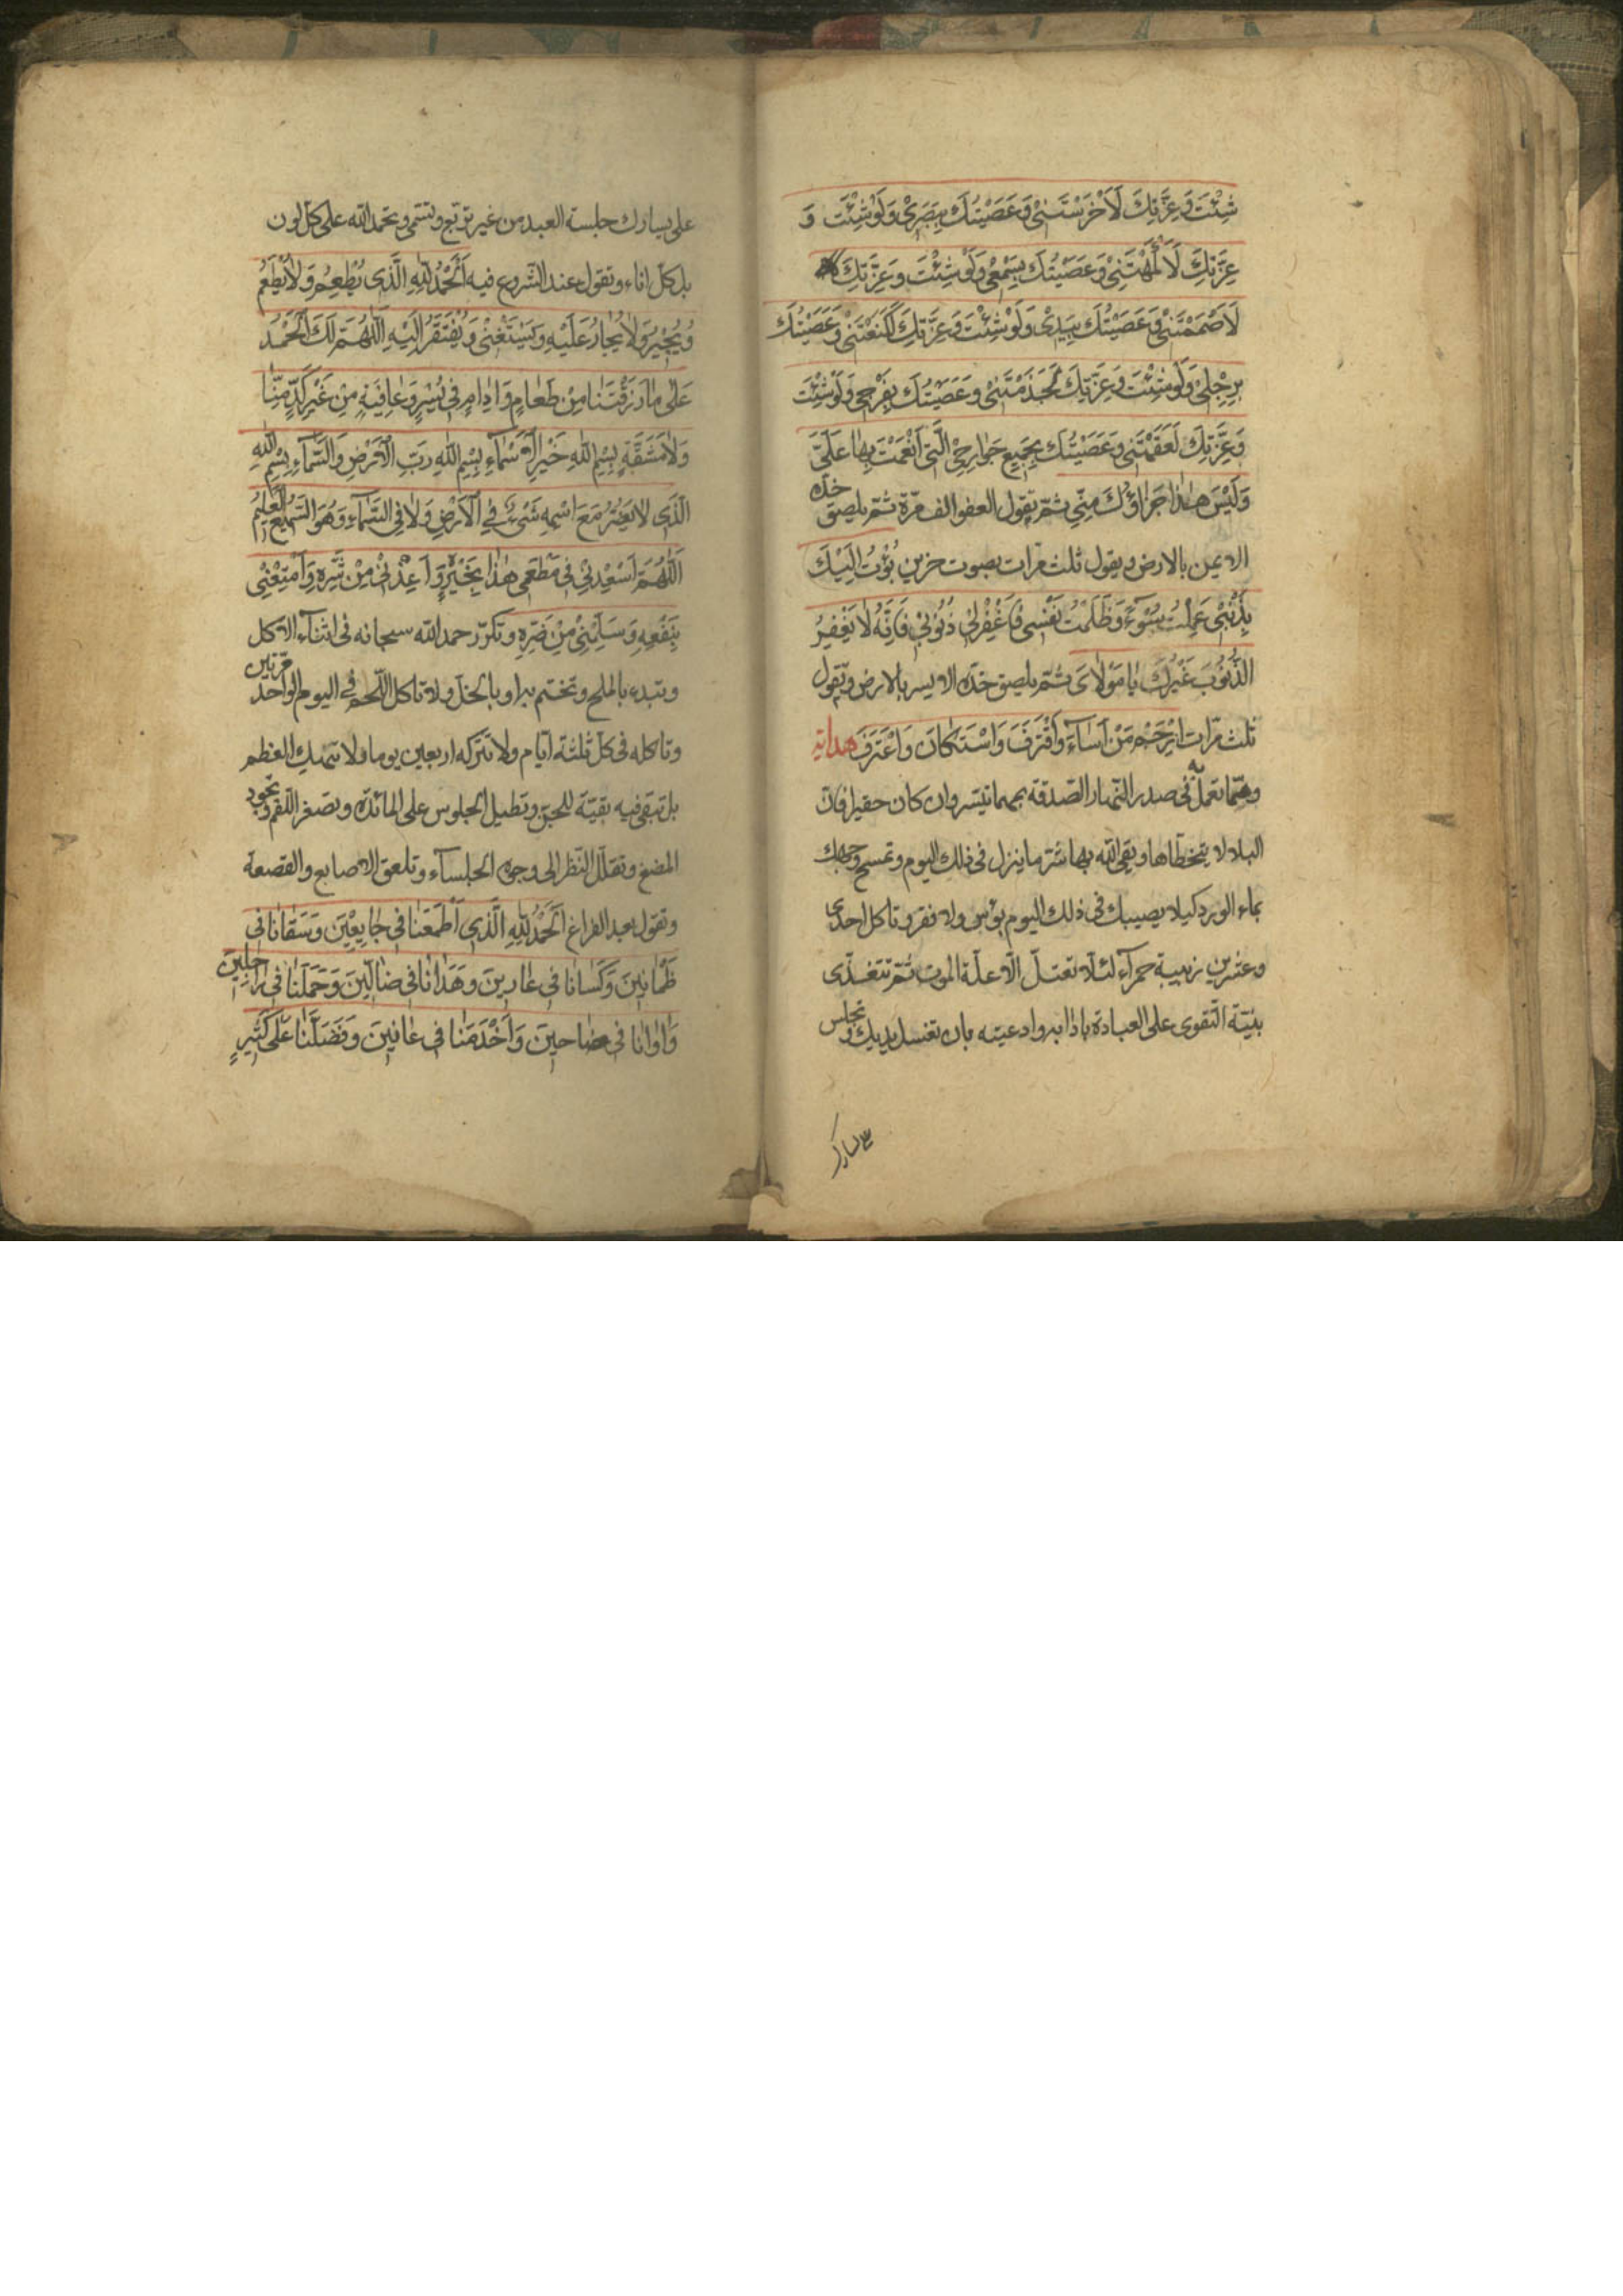 شِئْتَ وَعِزَّتِكَ لَأَخْرَسْتَنِي وَعَصَيْتُكَ بِبَصَرِي وَلَوْ شِئْتَ وَ
عِزَّتِكَ لَأَكْمَهْتَنِي وَعَصَيْتُكَ بِسَمْعِي وَلَوْ شِئْتَ وَعِزَّتِكَ
لَأَصْمَمْتَنِي وَعَصَيْتُكَ بِيَدِي وَلَوْ شِئْتَ وَعِزَّتِكَ لَكَنَعْتَنِي وَعَصَيْتُكَ
بِرِجْلِي وَلَوْ شِئْتَ وَعِزَّتِكَ لَجَذَمْتَنِي وَعَصَيْتُكَ بِفَرْجِي وَلَوْ شِئْتَ
وَعِزَّتِكَ لَعَقَمْتَنِي وَعَصَيْتُكَ بِجَمِيعِ جَوَارِحِي الَّتِي أَنْعَمْتَ بِهَا عَلَيَّ
وَلَيْسَ هٰذَا جَزَاؤُكَ مِنِّي ثمّ يقول العفو الف مرّة ثمّ يلصق خدّه
الايمن بالارض ويقول ثلث مرات بصوت حزين بُؤْتُ اِلَيْكَ
بِذَنْبِي عَمِلْتُ سُوءً وَظَلَمْتُ نَفْسِي فَاغْفِرْلِي ذُنُوبِي فَاِنَّهُ لَا يَغْفِرُ
الذُّنُوبَ غَيْرُكَ يَا مَوْلَايَ ثمّ يلصق خدّه الايسر بالارض ويقول
ثلث مرّات اِرْحَمْ مَنْ اَسَاءَ وَاقْتَرَفَ وَاسْتَكَانَ وَاعْتَرَفَ هداية
وممّا تعمل به فى صدر النّهار الصّدقة بمهما تيسّر وان كان حقيرا فانّ
البلاء لا يتخطّاها ويقى الله بها شرّ ما ينزل فى ذلك اليوم وتمسح وجهك
بماء الورد كيلا يصيبك فى ذلك اليوم بؤس ولا فقر وتاكل احدى
وعشرين زبيبة حمراء لئلا تعتلّ الّا علّة الموت ثمّ تتغدّى
بنيّة التّقوى على العبادة باذابه وادعيته بان تغسل يديك وتجلس
على يسارك جلسة العبد من غير تربّع وتسمّى وتحمد الله على كلّ لون
بل كلّ اناء وتقول عند الشّروع فيه اَلْحَمْدُ لِلّٰهِ الَّذِي يُطْعِمُ وَلَا يُطْعَمُ
وَيُجِيرُ وَلَا يُجَارُ عَلَيْهِ وَيَسْتَغْنِي وَيُفْتَقَرُ اِلَيْهِ اَللّٰهُمَّ لَكَ الْحَمْدُ
عَلَى مَا رَزَقْتَنَا مِنْ طَعَامٍ وَاِدَامٍ فِي يُسْرٍ وَعَافِيَةٍ مِنْ غَيْرِ كَدٍّ مِنَّا
وَلَا مَشَقَّةٍ بِسْمِ اللّٰهِ خَيْرِ الْاَسْمَاءِ بِسْمِ اللّٰهِ رَبِّ الْاَرْضِ وَالسَّمَاءِ بِسْمِ اللّٰهِ
الَّذِي لَا يَضُرُّ مَعَ اسْمِهِ شَيْءٌ فِي الْاَرْضِ وَلَا فِي السَّمَاءِ وَهُوَ السَّمِيعُ الْعَلِيمُ
اَللّٰهُمَّ اَسْعِدْنِي فِي مَطْعَمِي هٰذَا بِخَيْرِهِ وَاَعِذْنِي مِنْ شَرِّهِ وَاَمْتِعْنِي
بِنَفْعِهِ وَسَلِّمْنِي مِنْ ضَرِّهِ وتكرّر حمد الله سبحانه فى اثناء الاكل
وتبدء بالملح وتختم به او بالخلّ ولا تاكل اللّحم فى اليوم الواحد مرّتين
وتاكله فى كلّ ثلثة ايّام ولا تتركه اربعين يوما ولا تنهك العظم
بل تبقى فيه بقيّة للجنّ وتطيل الجلوس على المائدة وتصغر اللّقم وتجود
المضغ وتقلّل النّظر الى وجوه الجلساء وتلعق الاصابع والقصعة
وتقول بعد الفراغ اَلْحَمْدُ لِلّٰهِ الَّذِي اَطْعَمَنَا فِي جَايِعِينَ وَسَقَانَا فِي
ظَمْانِينَ وَكَسَانَا فِي عَارِينَ وَهَدَانَا فِي ضَالِّينَ وَحَمَلَنَا فِي رَاجِلِينَ
وَاٰوَانَا فِي ضَاحِينَ وَاَخْدَمَنَا فِي عَانِينَ وَفَضَّلَنَا عَلَى كَثِيرٍ